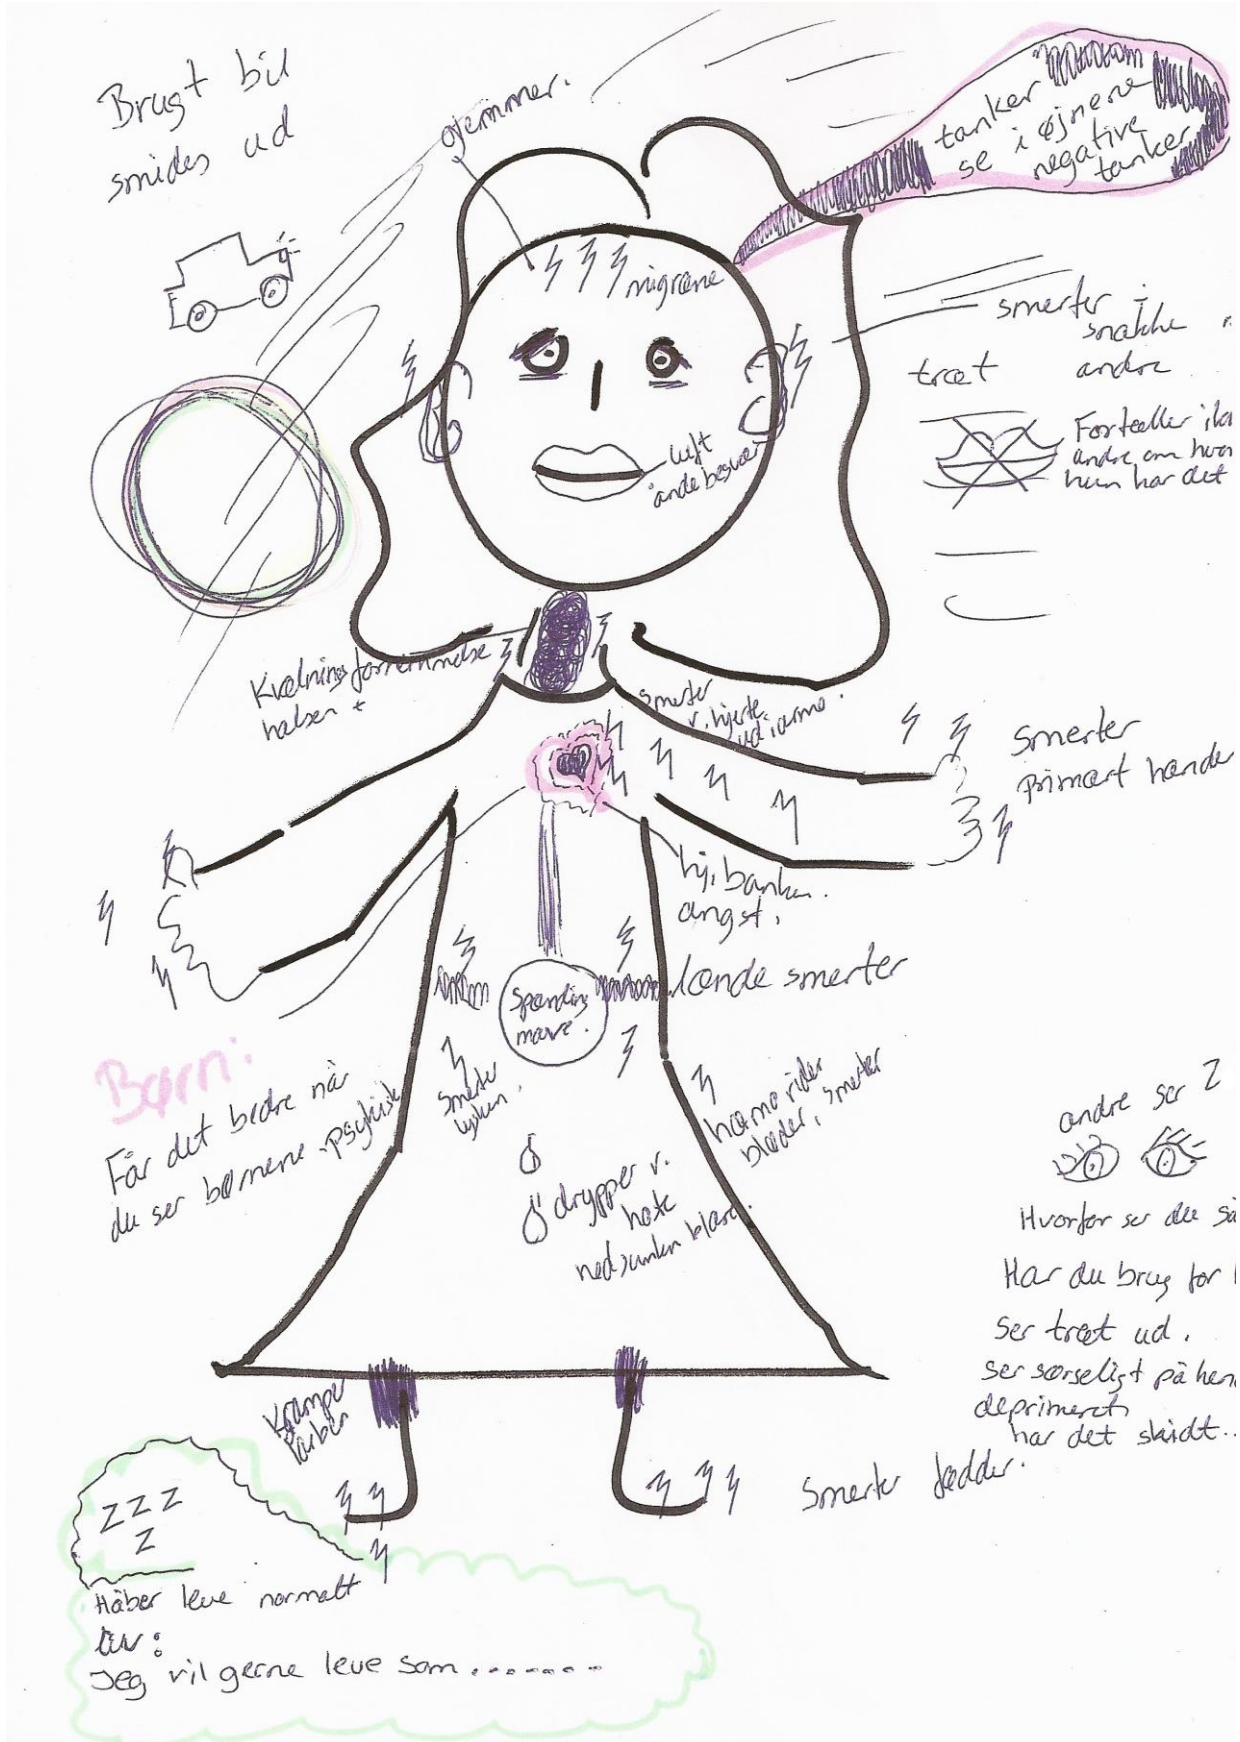 Brugt bil
smides ud
glemmer.
tanker som
se i øjnene
negative
tanker
migræne
smerter i
snakke
andre
træt
Fortæller
andre om
hun har det
luft
ånde besvær
Kvælningsfornemmelse
halsen +
smerter
v. hjerte
ud i arme.
smerter
primært hænder
hj. banken.
angst.
lænde smerter
Spænding
mave.
Børn:
Får det bedre når
du ser børnene - psykisk
smerter
lysken.
hæmorider
bløder, smerter
drypper v.
hoste
nedsunken blære.
andre ser Z
Hvorfor ser du
Har du brug for
ser træt ud.
ser sørgeligt på
deprimeret
har det skidt..
Kramper
Smerter fødder.
ZZZ
Z
Håber leve normalt
Jeg vil gerne leve som ........